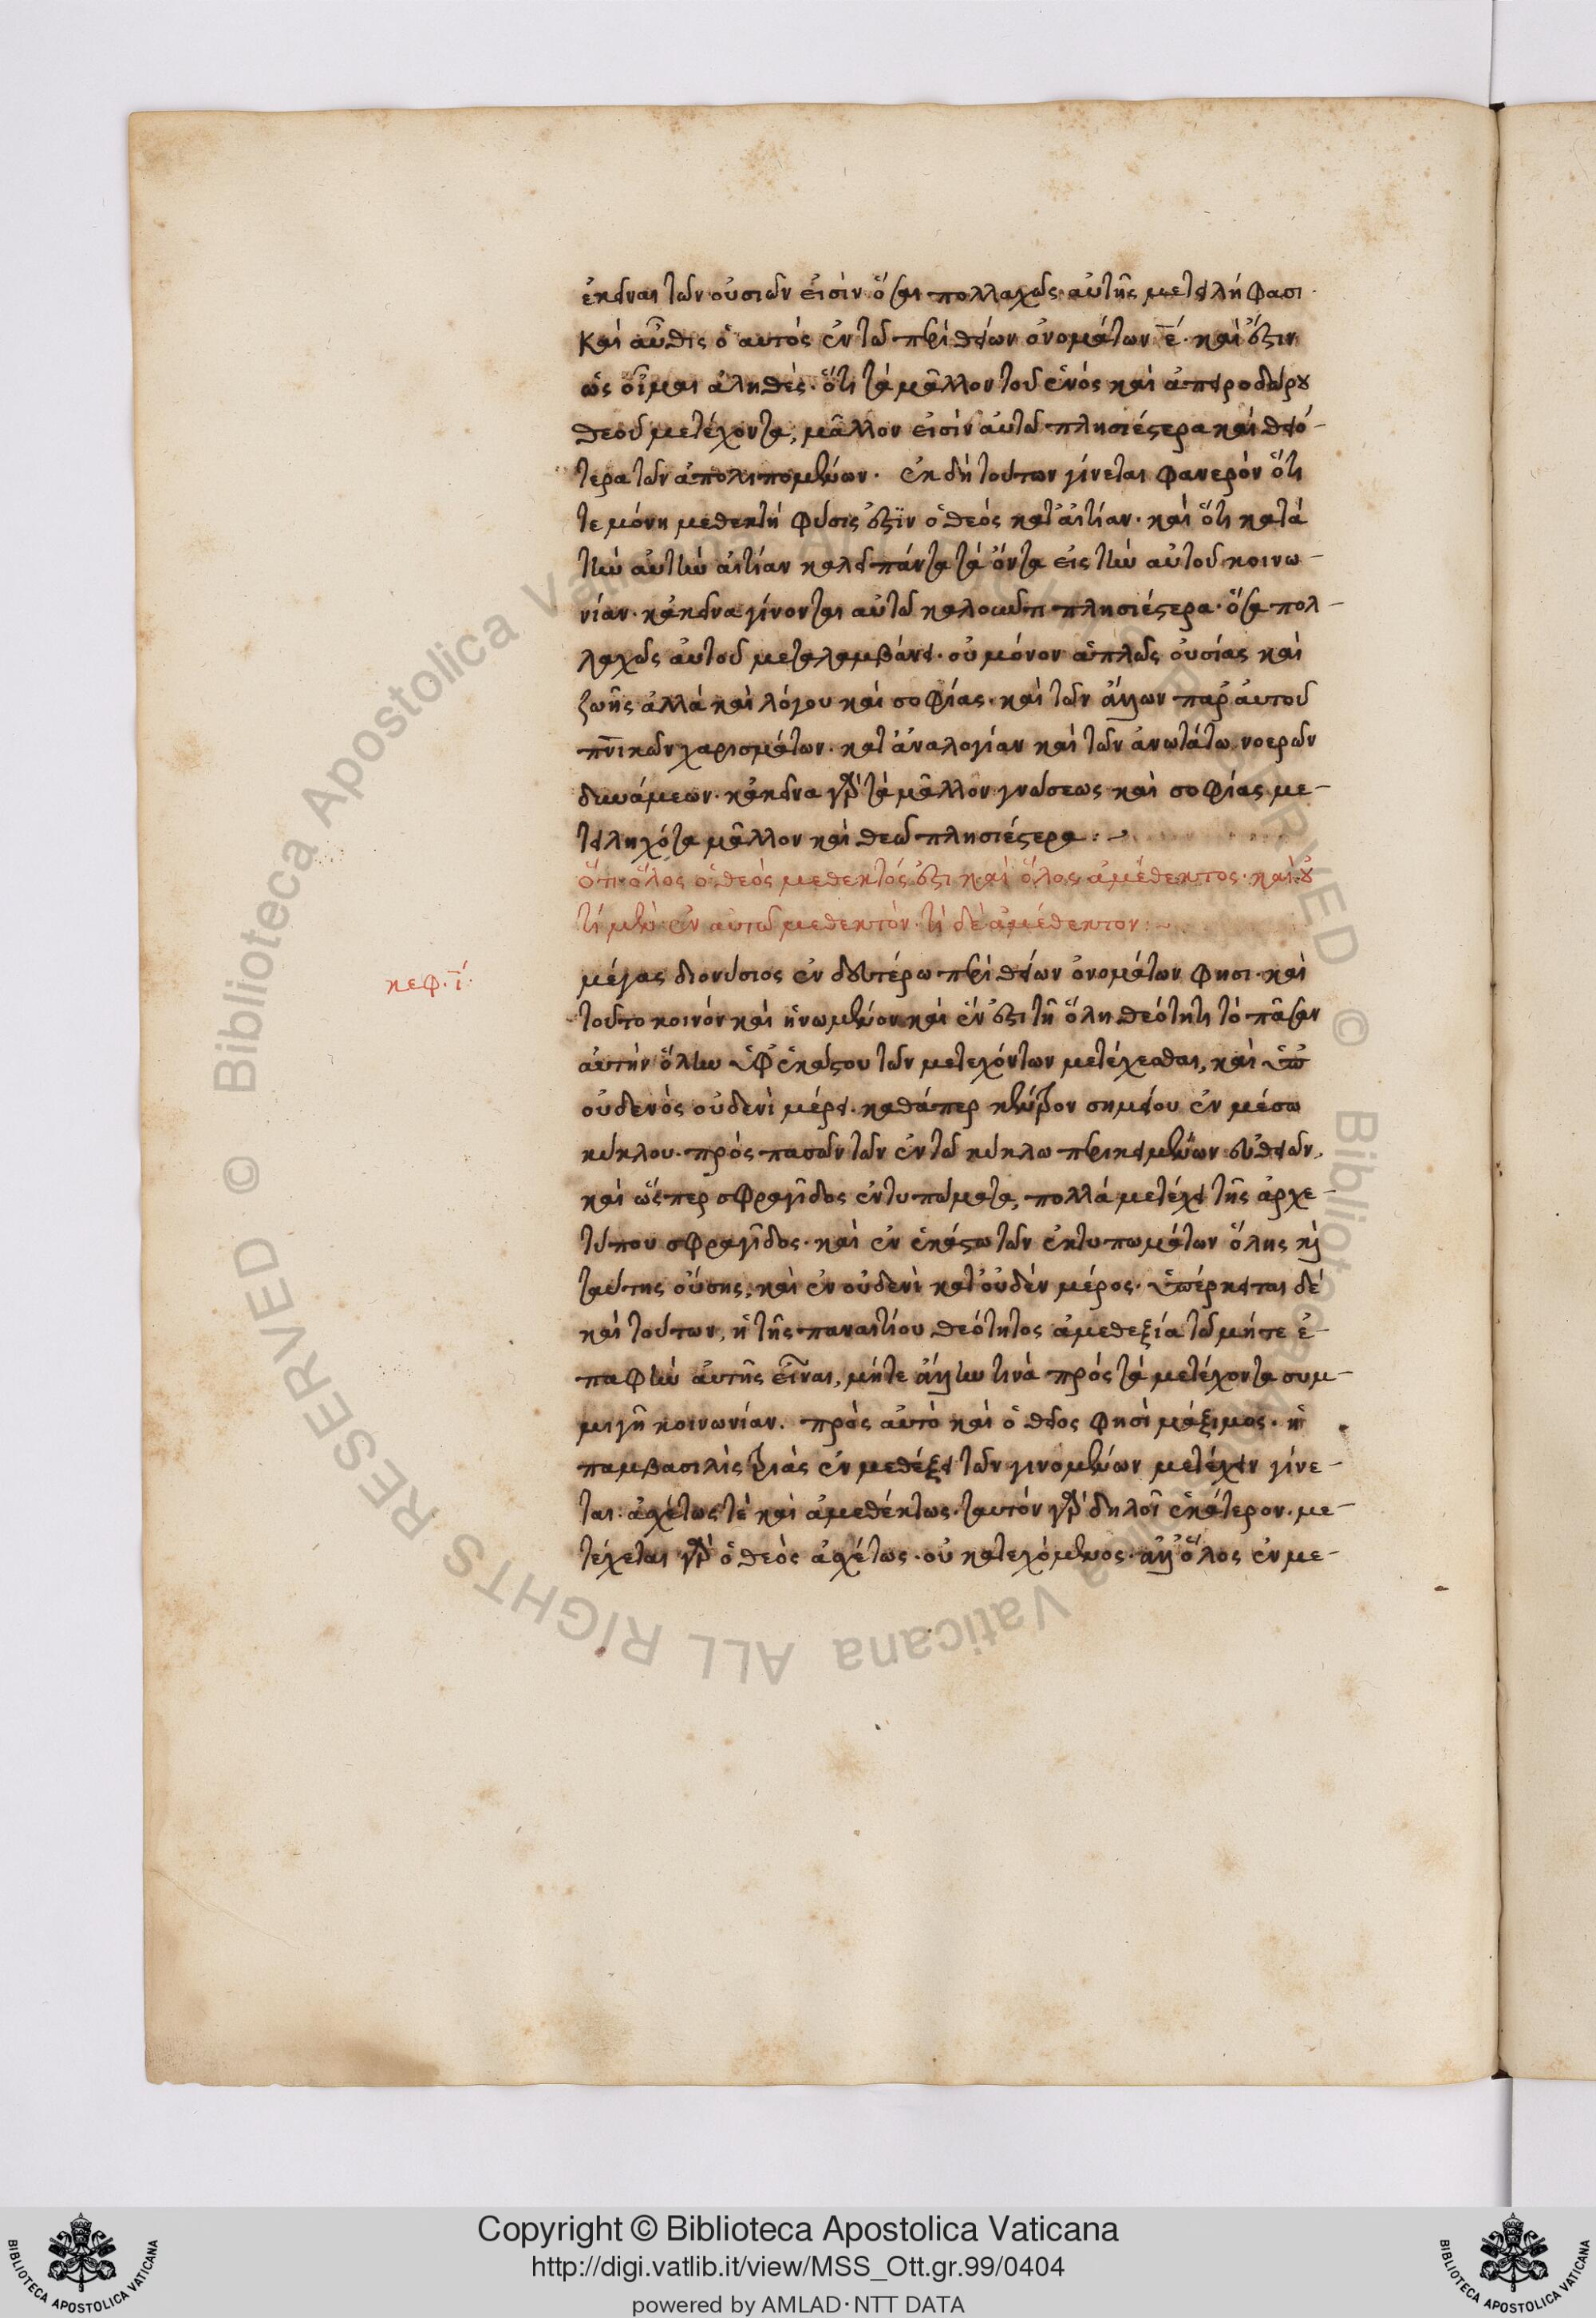 ἐκεῖναι τῶν οὐσιῶν εἰσὶν ὅσαι πολλαχῶς αὐτῆς μετειλήφασι.
Καὶ αὖθις ὁ αὐτὸς ἐν τῶ περὶ θείων ὀνομάτων ε̄. καὶ ἔστιν
ὡς οἶμαι ἀληθές. ὅτι τὰ μᾶλλον τοῦ ἑνὸς καὶ ἀπειροδώρου
θεοῦ μετέχοντα, μᾶλλον εἰσὶν αὐτῶ πλησιέστερα καὶ θειό-
τερα τῶν ἀπολιπομένων. ἐκ δὴ τούτων γίνεται φανερὸν ὅτι
τε μόνη μεθεκτὴ φύσις ἐστϊν ὁ θεός κατ' αἰτίαν. καὶ ὅτι κατὰ
τὴν αὐτὴν αἰτίαν καλεῖ πάντα τὰ ὄντα εἰς τὴν αὐτοῦ κοινω-
νίαν. κἀκεῖνα γίνονται αὐτῶ καλοῦντι πλησιέστερα. ὅσα πολ-
λαχῶς αὐτοῦ μεταλαμβάνει. οὐ μόνον ἁπλῶς οὐσίας καὶ
ζωῆς ἀλλὰ καὶ λόγου καὶ σοφίας. καὶ τῶν ἄλλων παρ' αὐτοῦ
πν̅ικῶν χαρισμάτων. κατ' ἀναλογίαν καὶ τῶν ἀνωτάτω νοερῶν
δυνάμεων. κἀκεῖνα γὰρ τὰ μᾶλλον γνώσεως καὶ σοφίας με-
τειληχότα μᾶλλον καὶ θεῶ πλησιέστερα :
Ὅτι ὅλος ὁ θεὸς μεθεκτός ἐστι καὶ ὅλος ἀμέθεκτος. καὶ
τί μὲν ἐν αὐτῶ μεθεκτὸν. τί δὲ ἀμέθεκτον :~
κεφ. ῑ.
μέγας διονύσιος ἐν δευτέρω περὶ θείων ὀνομάτων φησι. καὶ
τοῦτο κοινὸν καὶ ἡνωμένον καὶ ἕν ἐστι τῆ ὅλη θεότητι τὸ πᾶσαν
αὐτὴν ὅλην ὑφ' ἑκάστου τῶν μετεχόντων μετέχεσθαι, καὶ ὑπ'
οὐδενὸς οὐδενὶ μέρει. καθάπερ κέντρον σημείου ἐν μέσω
κύκλου. πρὸς πασῶν τῶν ἐν τῶ κύκλω περικειμένων εὐθειῶν,
καὶ ὥσπερ σφραγῖδος ἐντυπώματα, πολλὰ μετέχει τῆς ἀρχε-
τύπου σφραγῖδος. καὶ ἐν ἑκάστω τῶν ἐκτυπωμάτων ὅλης κ(αὶ)
ταύτης οὔσης, καὶ ἐν οὐδενὶ κατ' οὐδὲν μέρος. ὑπέρκειται δὲ
καὶ τούτων, ἡ τῆς παναιτίου θεότητος ἀμεθεξία τῶ μήτε ἐ-
παφὴν αὐτῆς εἶναι, μήτε ἄλλην τινὰ πρὸς τὰ μετέχοντα συμ-
μιγῆ κοινωνίαν. πρὸς αὐτὸ καὶ ὁ θεῖος φησὶ μάξιμος. ἡ
παμβασιλὶς τριὰς ἐν μεθέξει τῶν γινομένων μετέχειν γίνε-
ται. ἀσχέτως τὲ καὶ ἀμεθέκτως. ταυτὸν γὰρ δηλοῖ ἑκάτερον. με-
τέχεται γὰρ ὁ θεὸς ἀσχέτως. οὐ κατεχόμενος. ἀλλ' ὅλος ἐν με-
Copyright © Biblioteca Apostolica Vaticana
http://digi.vatlib.it/view/MSS_Ott.gr.99/0404
powered by AMLAD·NTT DATA
BIBLIOTECA APOSTOLICA VATICANA
BIBLIOTECA APOSTOLICA VATICANA
© Biblioteca Apostolica Vaticana ALL RIGHTS RESERVED
© Biblioteca Apostolica Vaticana ALL RIGHTS RESERVED